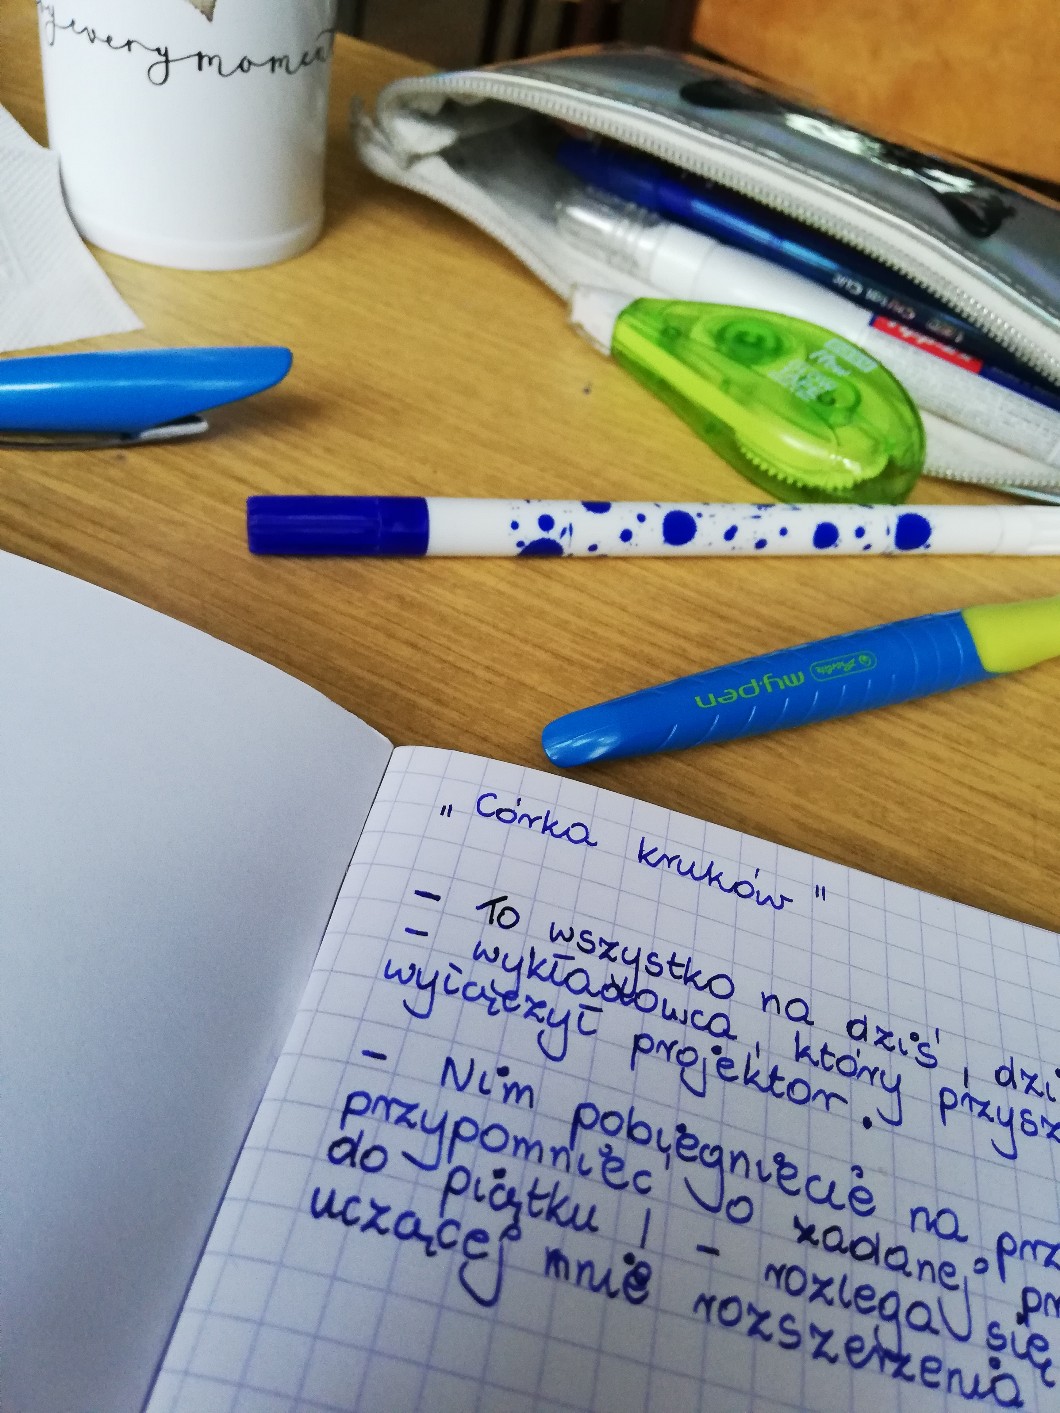 everymoment
my.pen
„Córka kruków"
- To wszystko na dziś, dzi
- wykładowca, który przysz
wyłączył projektor.
- Nim pobiegniecie na prz
przypomnieć o zadanej pr
do piątku! - rozlega się
uczącej mnie rozszerzenia